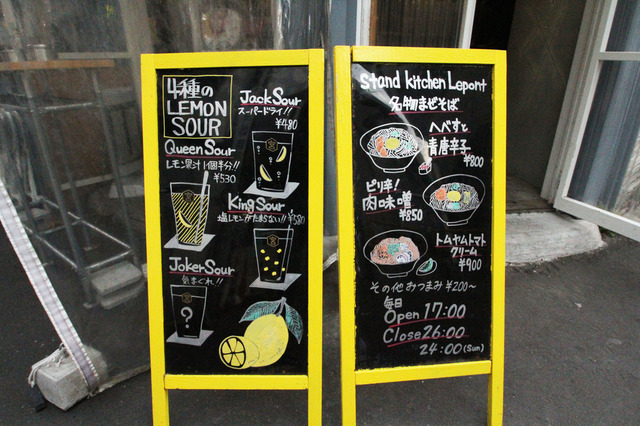 4種の
LEMON
SOUR
Jack Sour
スーパードライ!!
¥480
Queen Sour
レモン果汁1個半分!!
¥530
King Sour
塩レモンがたまない!!
¥580
Joker Sour
気まぐれ!!
?
Stand kitchen Lepont
名物まぜそば
へべすと
青唐辛子
¥800
ピリ辛!
肉味噌
¥850
トムヤムトマト
クリーム
¥900
その他おつまみ ¥200~
毎日
Open 17:00
Close 26:00
24:00(Sun)